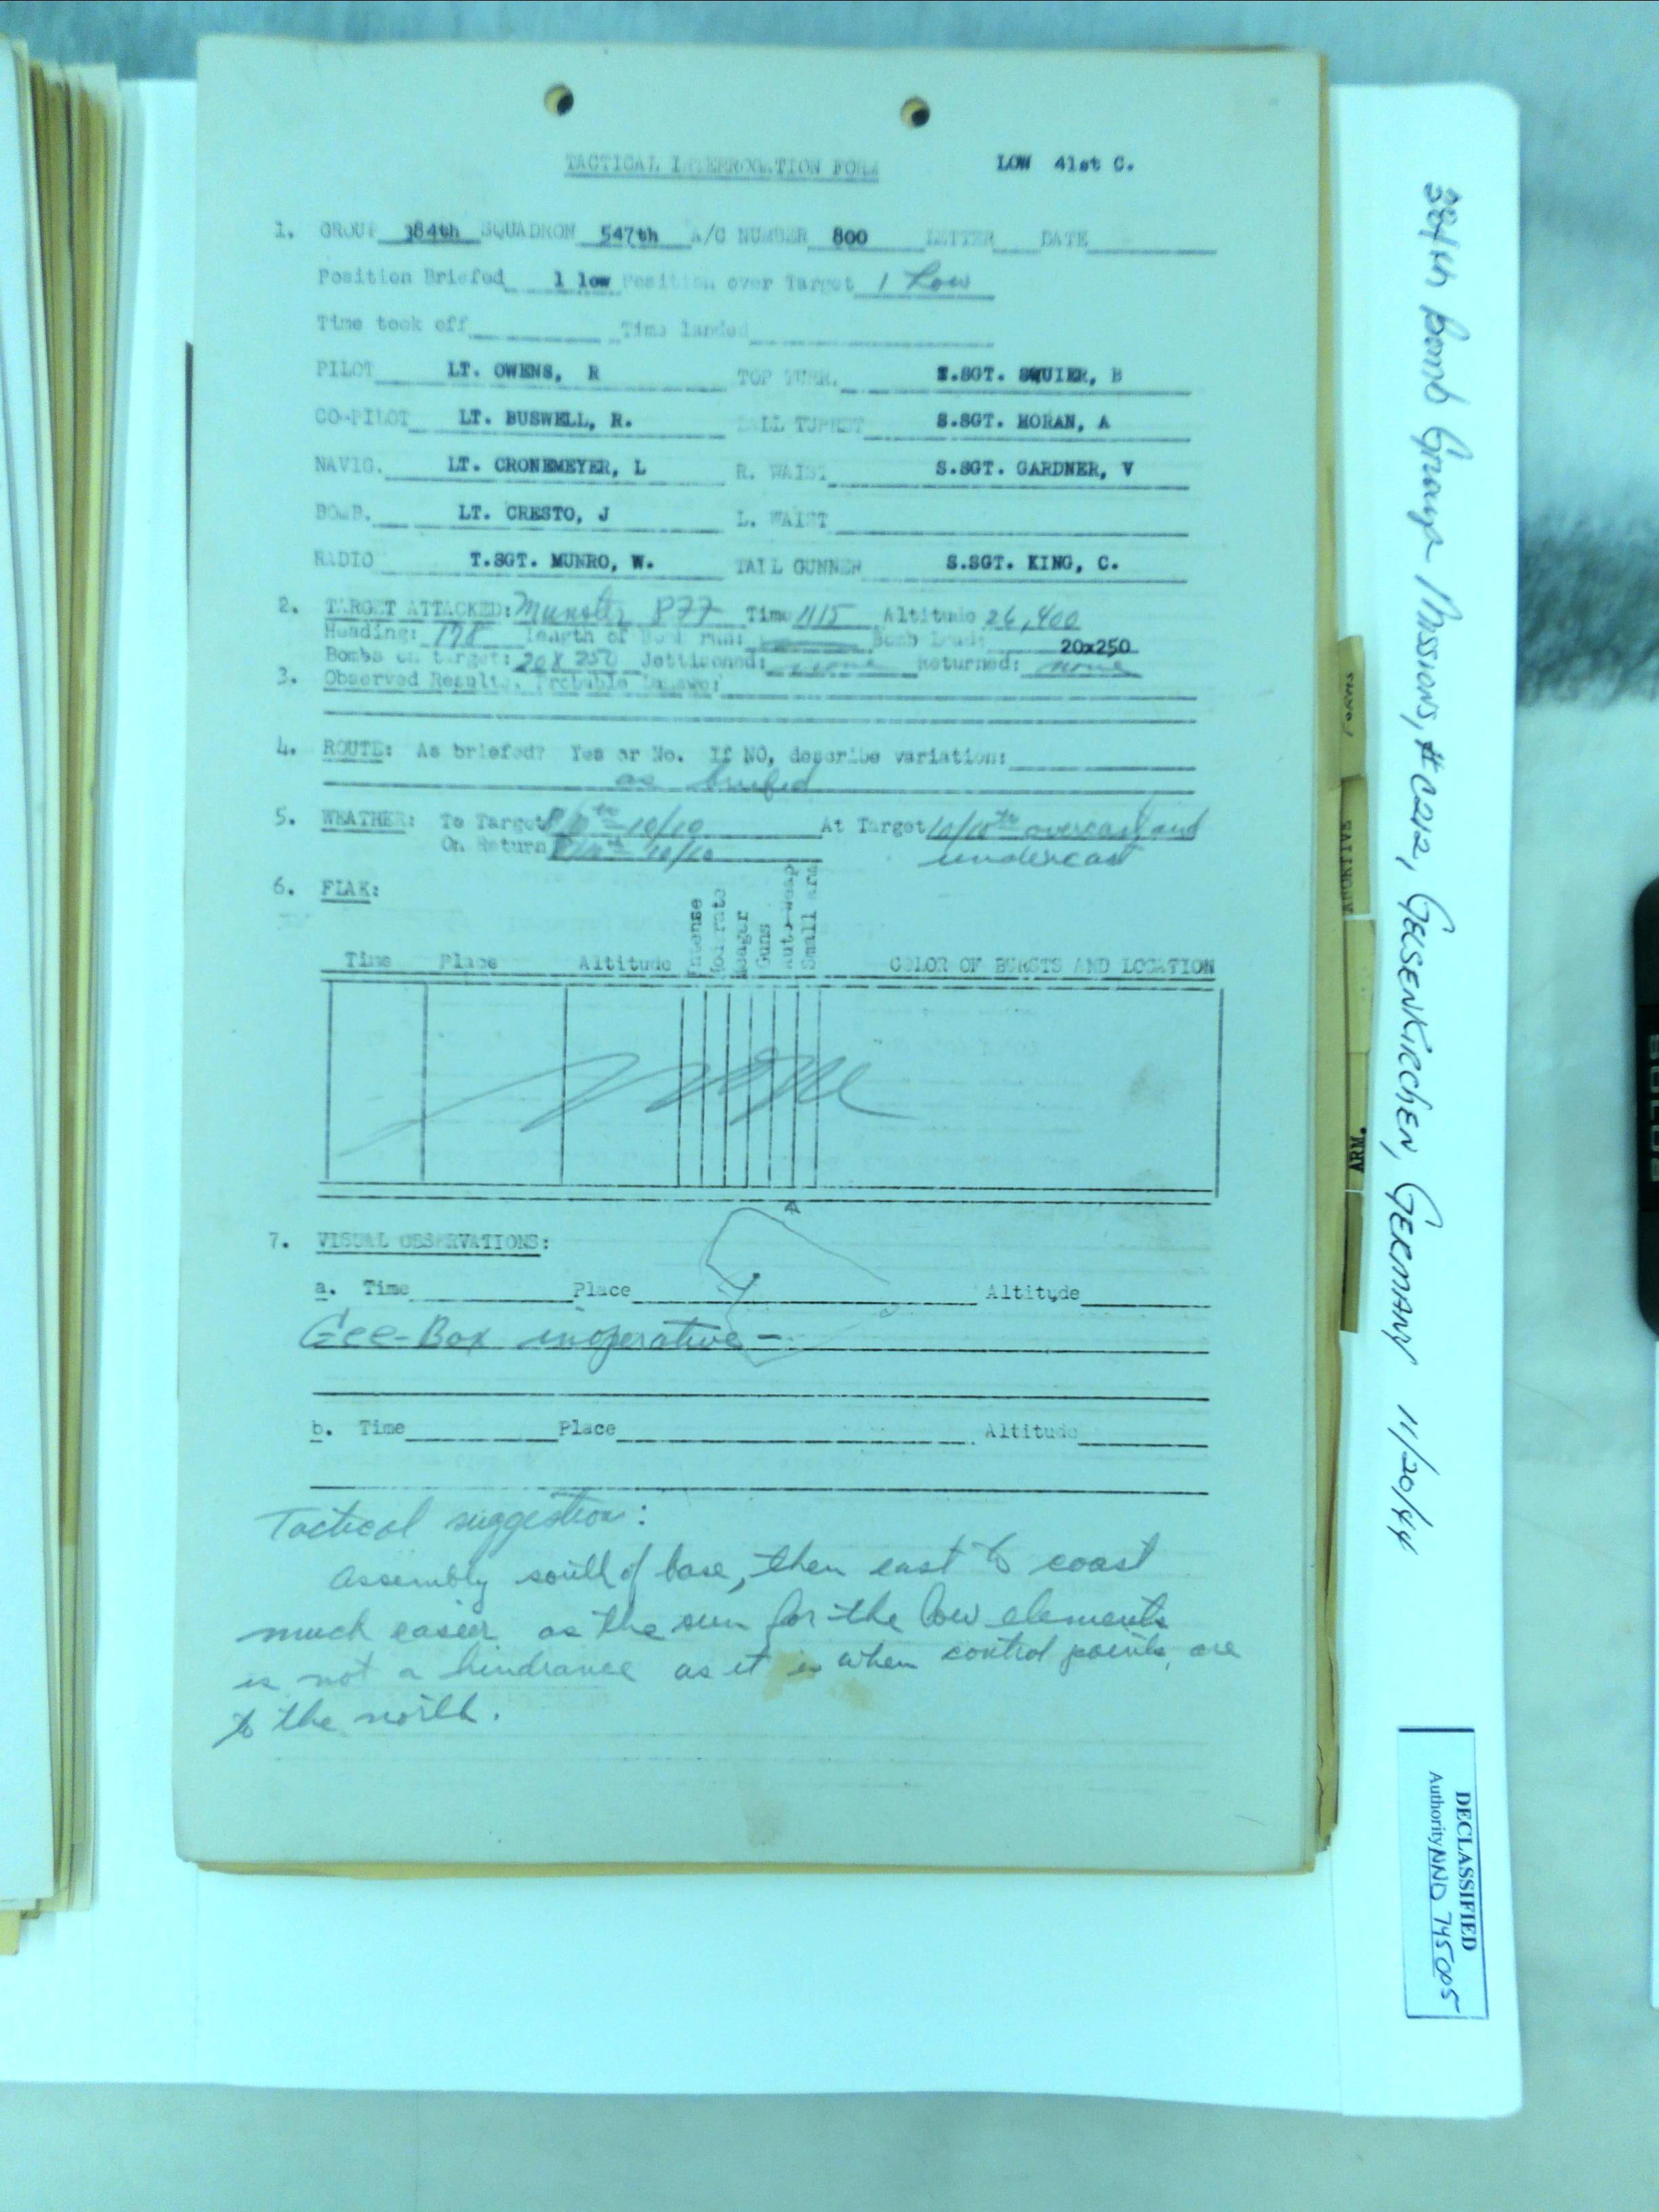 TACTICAL INTERROGATION FORM LOW 41st C.
1. GROUP 384th SQUADRON 547th A/C NUMBER 800 LETTER DATE
Position Briefed 1 low Position over Target 1 Low
Time took off Time landed
PILOT LT. OWENS, R TOP TURR. T.SGT. SQUIER, B
CO-PILOT LT. BUSWELL, R. BALL TURRET S.SGT. HORAN, A
NAVIG. LT. CRONEMEYER, L R. WAIST S.SGT. GARDNER, V
BOMB. LT. CRESTO, J L. WAIST
RADIO T.SGT. MUNRO, W. TAIL GUNNER S.SGT. KING, C.
2. TARGET ATTACKED: Munster PFF Time 1115 Altitude 26,400
Heading: 178 Length of Bomb run: Bomb Load: 20x250
Bombs on target: 20 x 250 Jettisoned: none Returned: none
3. Observed Results, Probable
4. ROUTE: As briefed? Yes or No. If NO, describe variation:
as briefed
5. WEATHER: To Target 10/10 At Target 10/10ths overcast and
On Return 10/10 undercast
6. FLAK:
Time Place Altitude Intense Moderate Meager Guns Auto-Weap Small arm COLOR OF BURSTS AND LOCATION
None
7. VISUAL OBSERVATIONS:
a. Time Place Altitude
Gee-Box inoperative -
b. Time Place Altitude
Tactical suggestion:
Assembly south of base, then east to coast
much easier as the sun for the low elements
is not a hindrance as it is when control points are
to the north.
384th Bomb Group Missions, #C212, GELSENKIRCHEN, GERMANY 11/20/44
DECLASSIFIED
Authority NND 745005
FORMS
ABORTIVE
ARM.